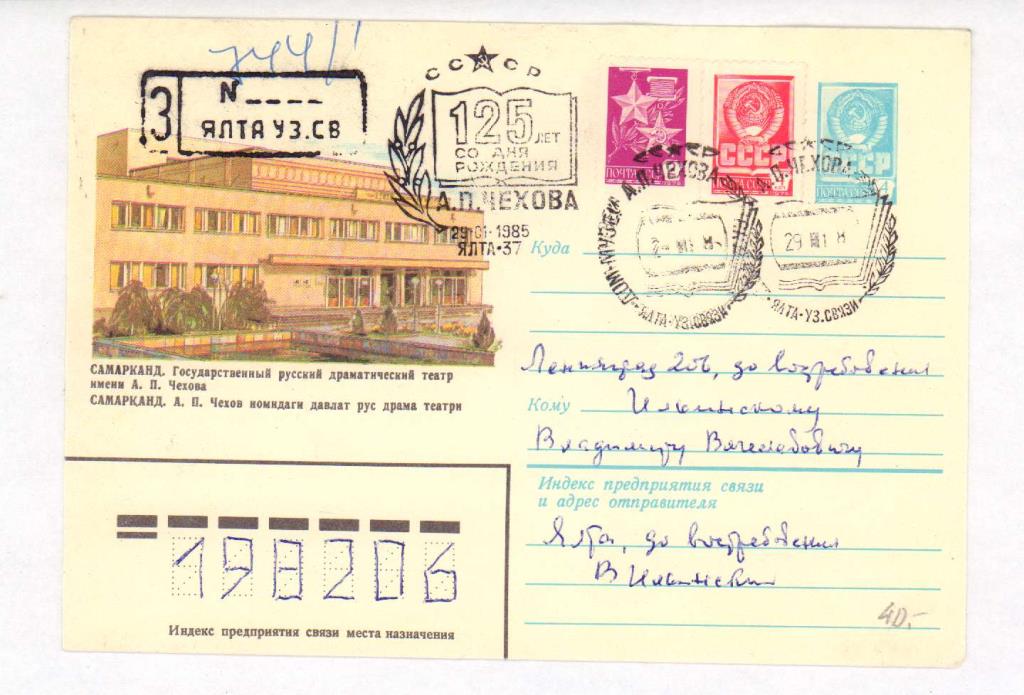 744/1
З
N
ЯЛТА УЗ.СВ
СССР
125 ЛЕТ
СО ДНЯ
РОЖДЕНИЯ
А.П.ЧЕХОВА
29·01·1985
ЯЛТА·37
ПОЧТА СССР
СССР
ПОЧТА СССР
СССР
ПОЧТА СССР 4
СССР
ДОМ-МУЗЕЙ А.П.ЧЕХОВА
ЯЛТА-УЗ.СВЯЗИ
СССР
А.П.ЧЕХОВА
29
ЯЛТА-УЗ.СВЯЗИ
САМАРКАНД. Государственный русский драматический театр
имени А. П. Чехова
САМАРҚАНД. А. П. Чехов номидаги давлат рус драма театри
Куда
Ленинград 206, до востребования
Кому Ильинскому
Владимиру Вячеславовичу
Индекс предприятия связи
и адрес отправителя
Ялта, до востребования
В Ильинский
198206
Индекс предприятия связи места назначения
40.-